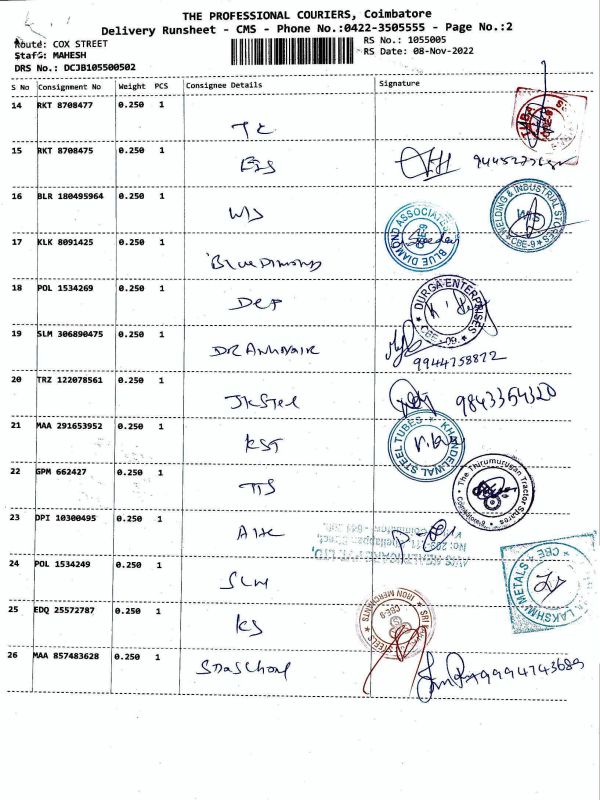 THE PROFESSIONAL COURIERS, Coimbatore
Delivery Runsheet - CMS - Phone No.:0422-3505555 - Page No.:2
Route: COX STREET
RS No.: 1055005
Staff: MAHESH
RS Date: 08-Nov-2022
DRS No.: DCJB105500502
S No Consignment No Weight PCS Consignee Details Signature
14 RKT 8708477 0.250 1
15 RKT 8708475 0.250 1
16 BLR 180495964 0.250 1 WIS
WELDING & INDUSTRIAL STORES
CBE-9
17 KLK 8091425 0.250 1 Blue Dimond
BLUE DIAMOND ASSOCIATES
CBE-9
18 POL 1534269 0.250 1 DEP
DURGA ENTERPRISES
CBE-09.
19 SLM 306890475 0.250 1
9944758872
20 TRZ 122078561 0.250 1 JK Steel
9843354320
21 MAA 291653952 0.250 1 KST
KHANDELWAL STEEL TUBES
22 GPM 662427 0.250 1 TTS
The Thirumurugan Tractor Spares
Coimbatore-9
23 DPI 10300495 0.250 1
24 POL 1534249 0.250 1 SLM
LAKSHMI METALS
CBE
25 EDQ 25572787 0.250 1 KS
IRON MERCHANTS
CBE-9
SRI
STEELS
26 MAA 857483628 0.250 1
9994743689